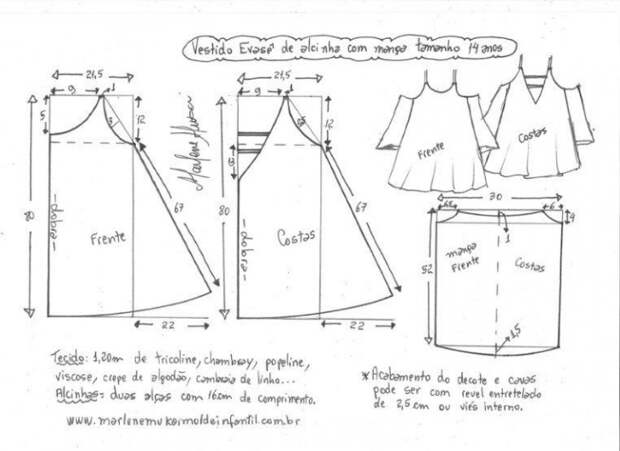 Vestido Evasê de alcinha com manga tamanho 14 anos
21,5
9
1
5
3
12
80
67
dobra
Frente
22
Marlene Mukai
21,5
9
1
12
8
80
67
dobra
Costas
22
Frente
Costas
70
6
4
1
52
manga
Frente
Costas
1,5
Tecido: 1,20m de tricoline, chambray, popeline,
viscose, crepe de algodão, cambraia de linho...
Alcinhas: duas alças com 16cm de comprimento.
www.marlenemukaimoldeinfantil.com.br
*Acabamento do decote e cavas
pode ser com revel entretelado
de 2,5cm ou viés interno.